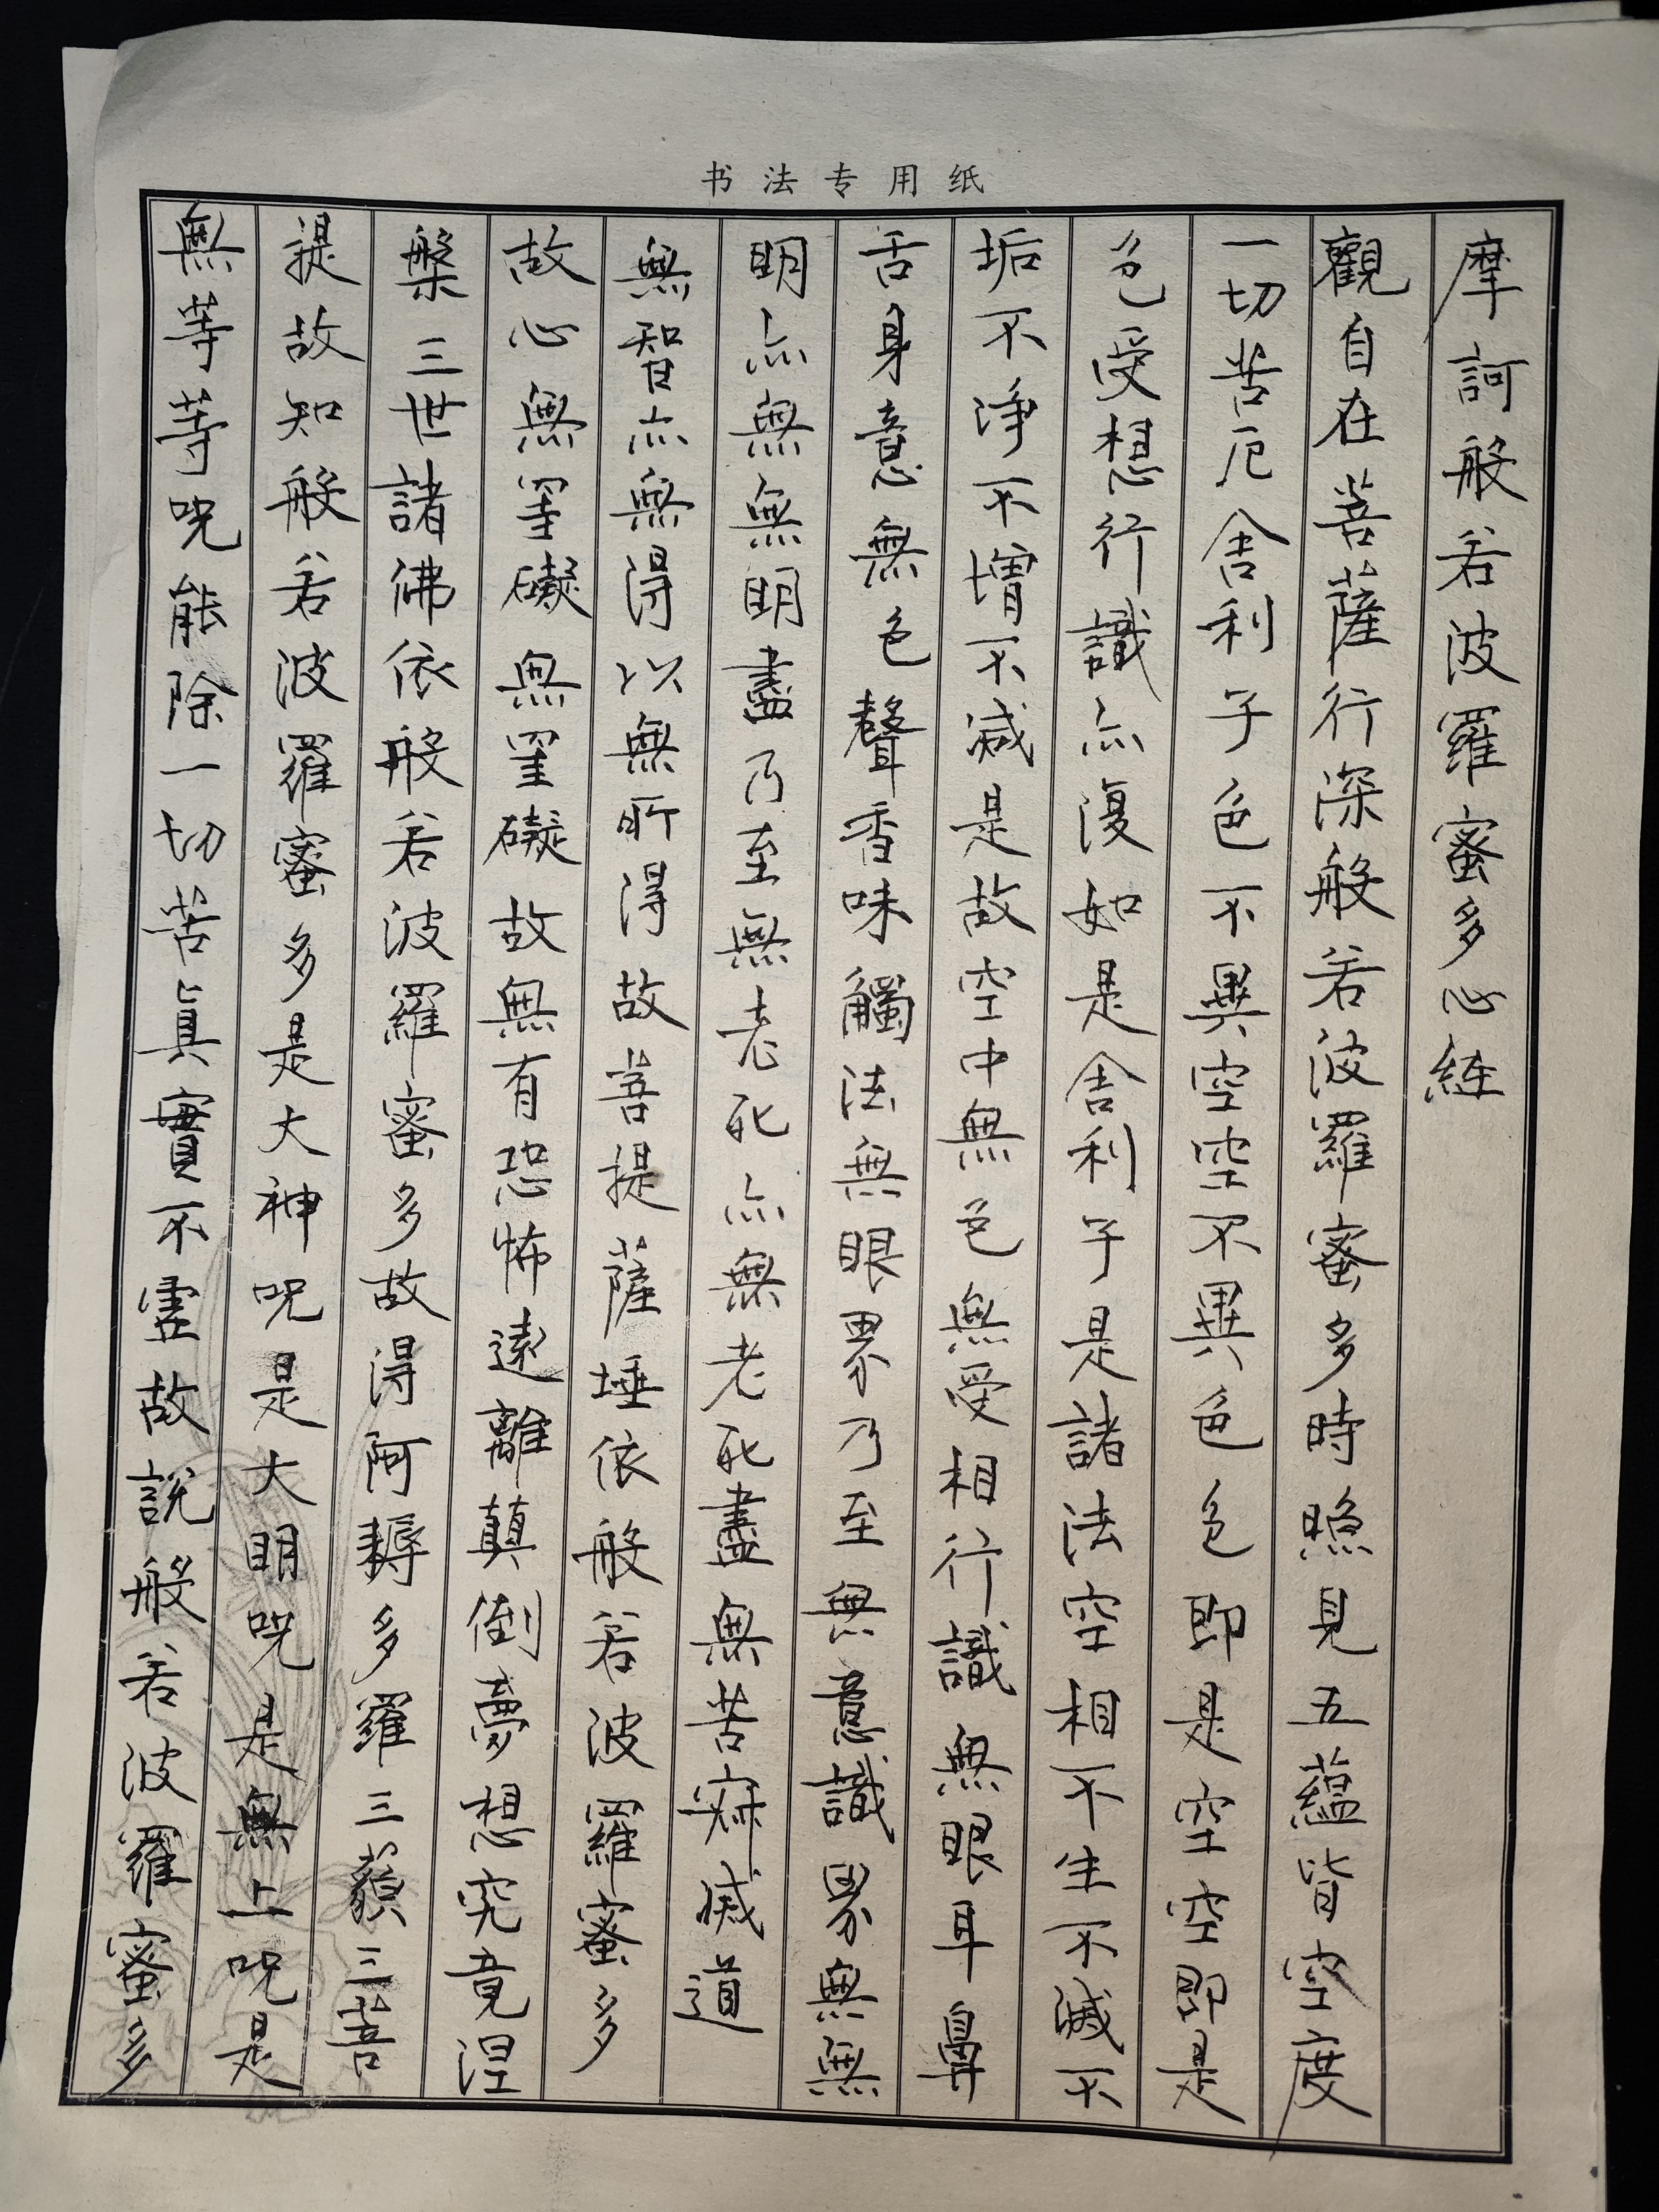 书法专用纸
摩訶般若波羅蜜多心経
觀自在菩薩行深般若波羅蜜多時照見五蘊皆空度
一切苦厄舍利子色不異空空不異色色即是空空即是
色受想行識亦復如是舍利子是諸法空相不生不滅不
垢不淨不增不减是故空中無色無受相行識無眼耳鼻
舌身意無色聲香味觸法無眼界乃至無意識界無無
明亦無無明盡乃至無老死亦無老死盡無苦寂滅道
無智亦無得以無所得故菩提薩埵依般若波羅蜜多
故心無罣礙無罣礙故無有恐怖遠離顛倒夢想究竟涅
槃三世諸佛依般若波羅蜜多故得阿耨多羅三藐三菩
提故知般若波羅蜜多是大神呪是大明呪是無上呪是
無等等呪能除一切苦真實不虛故説般若波羅蜜多